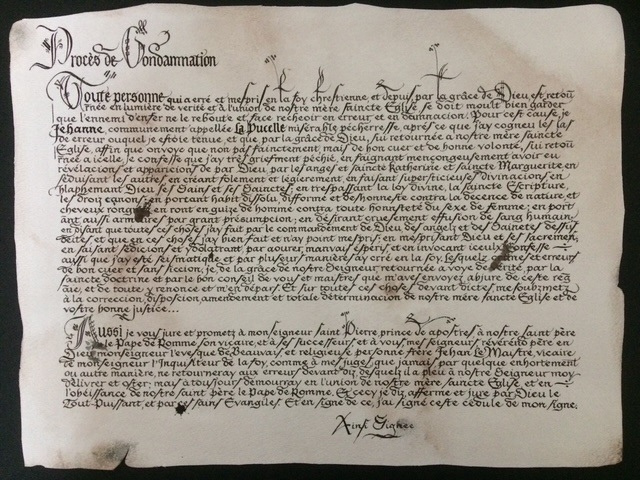 Procès de Condamnation
Toute personne qui a erré et mespris en la foy chrestienne, et depuis par la grâce de Dieu est retou
rnée en lumière de verité et à l'union de nostre mère saincte Eglise se doit moult bien garder
que l'ennemi d'enfer ne le reboute et face recheoir en erreur et en damnacion. Pour ceste cause, je
Jehanne, communement appellée La Pucelle misérable pécherresse, après ce que j'ay cogneu les las
de erreur ouquel je estoie tenue, et que par la grâce de Dieu, sui retournée a nostre mère saincte
Eglise, affin que on voye que non pas fainctement, mais de bon cuer et de bonne volonté, sui retou
rnée a icelle, je confesse que j'ay très griefment péchié, en faignant mençongeusement avoir eu
révélacions et apparicions de par Dieu par les anges et saincte Katherine et saincte Marguerite, en
séduisant les autres en créant folement et légièrement, en faisant supersticieuses divinacions, en
blaphemant Dieu, ses Sains et ses Sainctes; en trespassant la loy divine, la saincte Escripture,
les droiz canons; en portant habit dissolu, difforme et deshonneste contre la decence de nature, et
cheveux en ront en guise de homme, contre toute honnesteté du sexe de femme; en port
ant aussi par grant présumpcion; en désirant cruesement effusion de sang humain;
en disant que toutes ces choses j'ay fait par le commandement de Dieu, des angelz et des Sainctes dessus
dictes, et que en ces choses j'ay bien fait et n'ay point mespris; en mesprisant Dieu et ses sacremens,
en faisant sédicions et ydolatrant par aourer mauvais esperis, et en invocant iceulx. Confesse
aussi que j'ay esté scismatique et par pluseurs manières ay erré en la foy. Lesquelz et erreurs
de bon cuer et sans ficcion, je, de la grâce de nostre Seigneur retournée a voye de vérité, par la
saincte doctrine et par le bon conseil de vous et maistres que m'avez envoyés, abjure de ceste reg
nie, et de toute y renonce et m'en dépars. Et sur toutes ces choses devant dictes me soubzmetz
à la correction, disposicion, amendement et totale déterminacion de nostre mère saincte Eglise et de
vostre bonne justice...
Aussi je vous jure et prometz à monseigneur saint Pierre, prince de apostres à nostre saint père
le Pape de Romme son vicaire, et à ses successeurs, et à vous, mes seigneurs, révérend père en
Dieu monseigneur l'evesque de Beauvais et religieuse personne frère Jehan Le Maistre, vicaire
de monseigneur l'Inquisiteur de la foy, comme à mes juges, que jamais par quelque enhortement
ou autre manière, ne retourneray aux erreurs devant diz, desquelz il a pleü à nostre Seigneur moy
délivrer et oster; mais à tousjours demourray en l'union de nostre mère saincte Eglise, et en
l'obéissance de nostre saint père le Pape de Romme. Et cecy je diz, afferme et jure par Dieu le
Tout-Puissant, et par ces sains Evangiles. Et en signe de ce, j'ai signé ceste cédule de mon signe.
Ainsi Signée